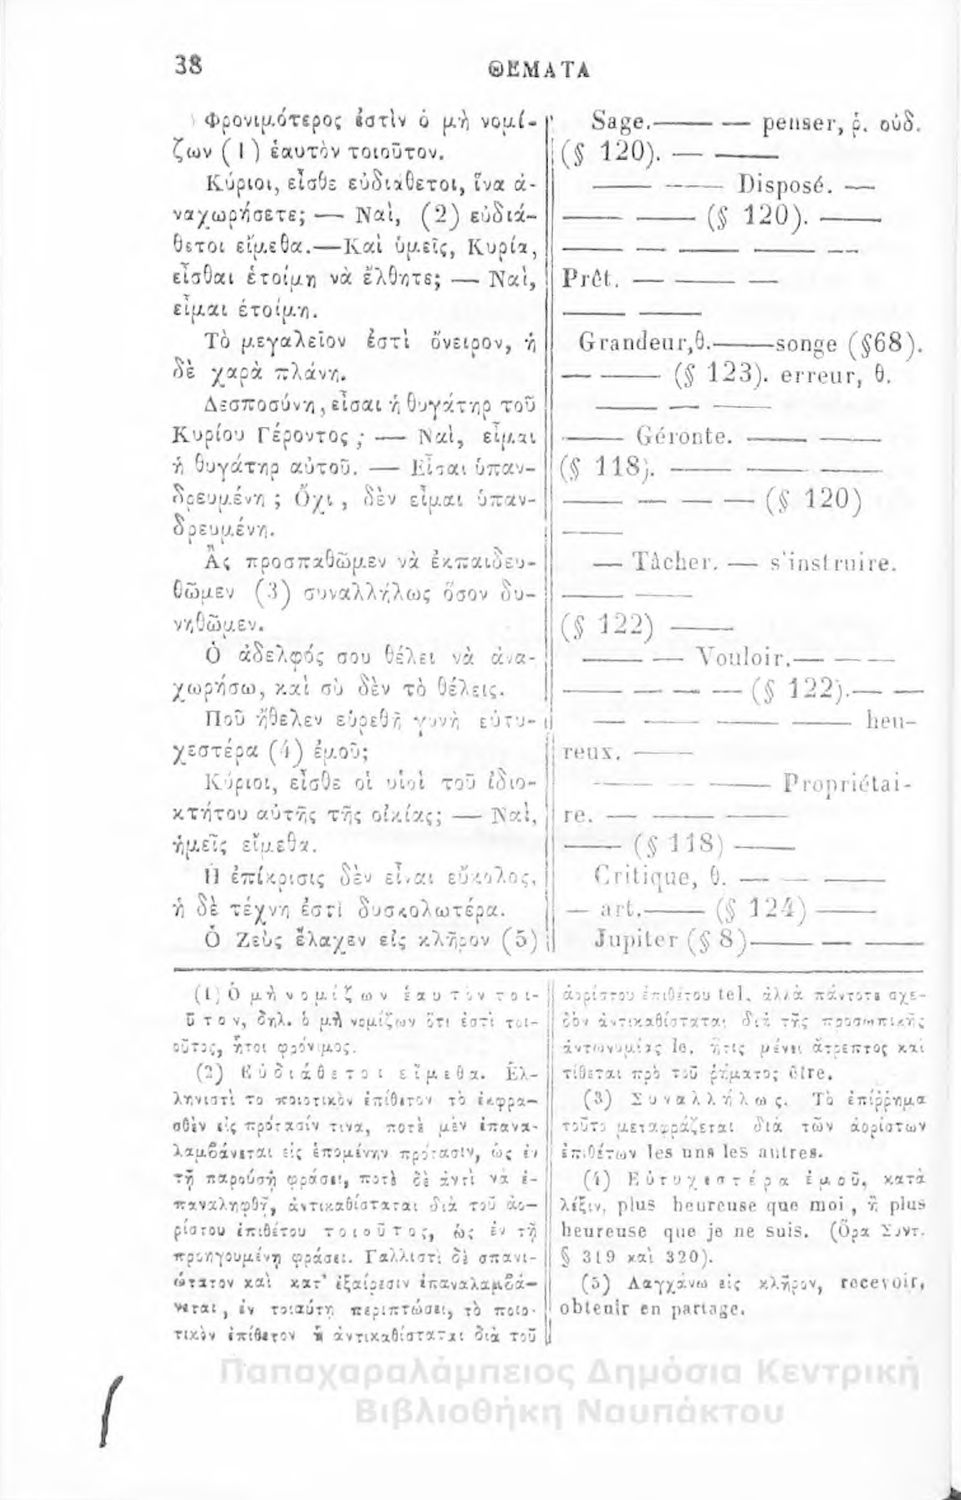 38
ΘΕΜΑΤΑ
Φρονιμότερος ἐστὶν ὁ μὴ νομί-
ζων (1) ἑαυτὸν τοιοῦτον.
Κύριοι, εἶσθε εὐδιάθετοι, ἵνα ἀ-
ναχωρήσετε; — Ναὶ, (2) εὐδιά-
θετοι εἴμεθα.—Καὶ ὑμεῖς, Κυρία,
εἶσθαι ἑτοίμη νὰ ἔλθητε; — Ναὶ,
εἶμαι ἑτοίμη.
Τὸ μεγαλεῖον ἐστὶ ὄνειρον, ἡ
δὲ χαρὰ πλάνη.
Δεσποσύνη, εἶσαι ἡ θυγάτηρ τοῦ
Κυρίου Γέροντος ; — Ναὶ, εἶμαι
ἡ θυγάτηρ αὐτοῦ. — Εἶσαι ὑπαν-
δρευμένη ; Ὄχι , δὲν εἶμαι ὑπαν-
δρευμένη.
Ἂς προσπαθῶμεν νὰ ἐκπαιδευ-
θῶμεν (3) συναλλήλως ὅσον δυ-
νηθῶμεν.
Ὁ ἀδελφός σου θέλει νὰ ἀνα-
χωρήσω, καὶ σὺ δὲν τὸ θέλεις.
Ποῦ ἤθελεν εὑρεθῆ γυνὴ εὐτυ-
χεστέρα (4) ἐμοῦ;
Κύριοι, εἶσθε οἱ υἱοὶ τοῦ ἰδιο-
κτήτου αὐτῆς τῆς οἰκίας; — Ναὶ,
ἡμεῖς εἴμεθα.
Ἡ ἐπίκρισις δὲν εἶναι εὔκολος,
ἡ δὲ τέχνη ἐστὶ δυσκολωτέρα.
Ὁ Ζεὺς ἔλαχεν εἰς κλῆρον (5)
Sage.—— — penser, ῥ. οὐδ.
(§ 120). — ——
—— —— Disposé. —
—— —— (§ 120). ——
—— — —— —— —
Prêt. — —— —
—— ——
Grandeur,θ.——songe (§68).
— —— (§ 123). erreur, θ.
—— — ——
—— Géronte. —— ——
(§ 118). —— —— ——
—— — — — (§ 120)
——
— Tâcher. — s'instruire.
—— ——
(§ 122) ——
—— — Vouloir.— — ——
—— — — — (§ 122).— —
— —— —— —— heu-
reux. ——
—— — —— Propriétai-
re. — —— ——
—— (§ 118) ——
Critique, θ. — — ——
— art.—— (§ 124) ——
Jupiter (§ 8)—— — ——
(1) Ὁ μὴ νομίζων ἑαυτὸν τοι-
οῦτον, δηλ. ὁ μὴ νομίζων ὅτι ἐστὶ τοι-
οῦτος, ἤτοι φρόνιμος.
(2) Εὐδιάθετοι εἴμεθα. Ἑλ-
ληνιστὶ τὸ ποιοτικὸν ἐπίθετον τὸ ἐκφρα-
σθὲν εἰς πρότασίν τινα, ποτὲ μὲν ἐπανα-
λαμβάνεται εἰς ἑπομένην πρότασιν, ὡς ἐν
τῇ παρούσῃ φράσει, ποτὲ δὲ ἀντὶ νὰ ἐ-
παναληφθῇ, ἀντικαθίσταται διὰ τοῦ ἀο-
ρίστου ἐπιθέτου τοιοῦτος, ὡς ἐν τῇ
προηγουμένῃ φράσει. Γαλλιστὶ δὲ σπανι-
ώτατον καὶ κατ' ἐξαίρεσιν ἐπαναλαμβά-
νεται, ἐν τοιαύτῃ περιπτώσει, τὸ ποιο-
τικὸν ἐπίθετον ἢ ἀντικαθίσταται διὰ τοῦ
ἀορίστου ἐπιθέτου tel, ἀλλὰ πάντοτε σχε-
δὸν ἀντικαθίσταται διὰ τῆς προσωπικῆς
ἀντωνυμίας le, ἥτις μένει ἄτρεπτος καὶ
τίθεται πρὸ τοῦ ῥήματος être.
(3) Συναλλήλως. Τὸ ἐπίῤῥημα
τοῦτο μεταφράζεται διὰ τῶν ἀορίστων
ἐπιθέτων les uns les autres.
(4) Εὐτυχεστέρα ἐμοῦ, κατὰ
λέξιν, plus heureuse que moi , ἢ plus
heureuse que je ne suis. (Ὅρα Συντ.
§ 319 καὶ 320).
(5) Λαγχάνω εἰς κλῆρον, recevoir,
obtenir en partage.
Παπαχαραλάμπειος Δημόσια Κεντρική
Βιβλιοθήκη Ναυπάκτου